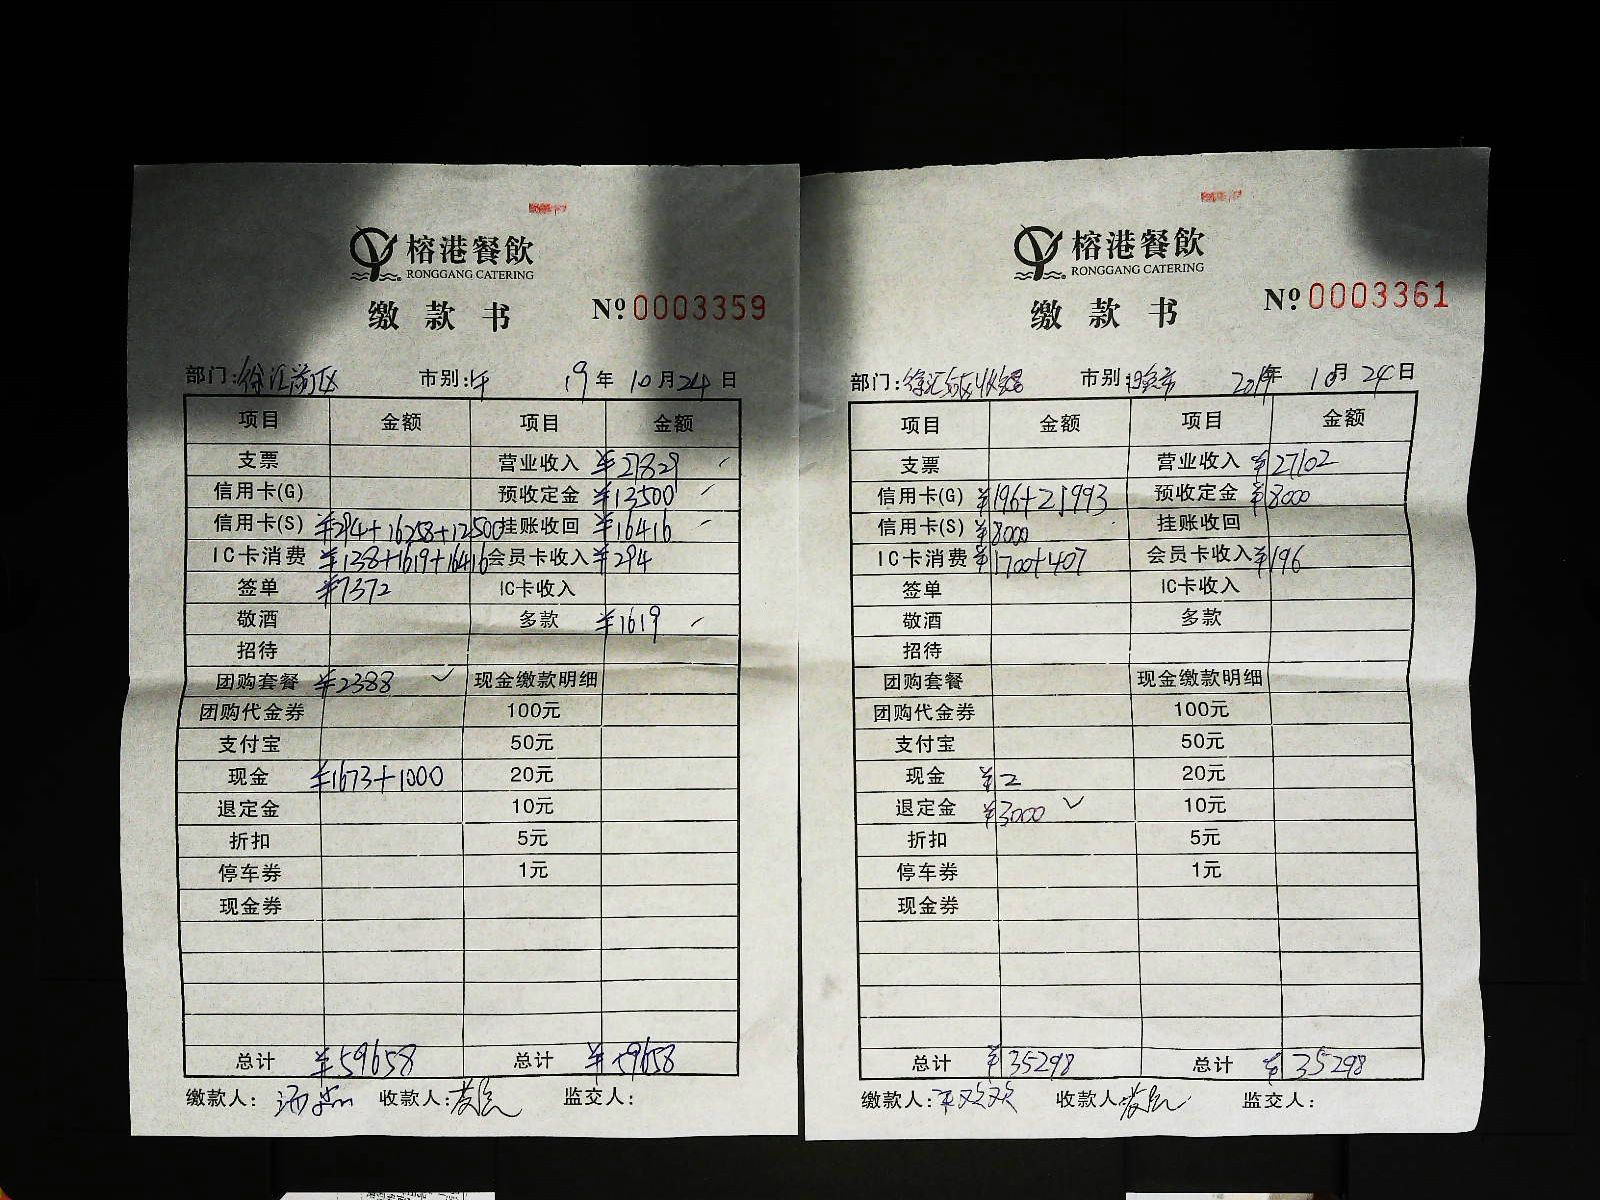 榕港餐飲
RONGGANG CATERING
缴款书
№ 0003359
部门:徐汇前区 市别:午 19年10月24日
项目 金额 项目 金额
支票 营业收入 ¥27829
信用卡(G) 预收定金 ¥13500
信用卡(S) ¥294+16258+12500 挂账收回 ¥16416
IC卡消费 ¥138+1619+16416 会员卡收入 ¥294
签单 ¥7372 IC卡收入
敬酒 多款 ¥1619
招待
团购套餐 ¥2388 现金缴款明细
团购代金券 100元
支付宝 50元
现金 ¥1673+1000 20元
退定金 10元
折扣 5元
停车券 1元
现金券
总计 ¥59658 总计 ¥59658
缴款人: 收款人: 监交人:
榕港餐飲
RONGGANG CATERING
缴款书
№ 0003361
部门:徐汇 市别: 2019年10月24日
项目 金额 项目 金额
支票 营业收入 ¥27102
信用卡(G) ¥196+25993 预收定金 ¥8000
信用卡(S) ¥8000 挂账收回
IC卡消费 ¥1700+407 会员卡收入 ¥196
签单 IC卡收入
敬酒 多款
招待
团购套餐 现金缴款明细
团购代金券 100元
支付宝 50元
现金 ¥2 20元
退定金 ¥3000 10元
折扣 5元
停车券 1元
现金券
总计 ¥35298 总计 ¥35298
缴款人: 收款人: 监交人: